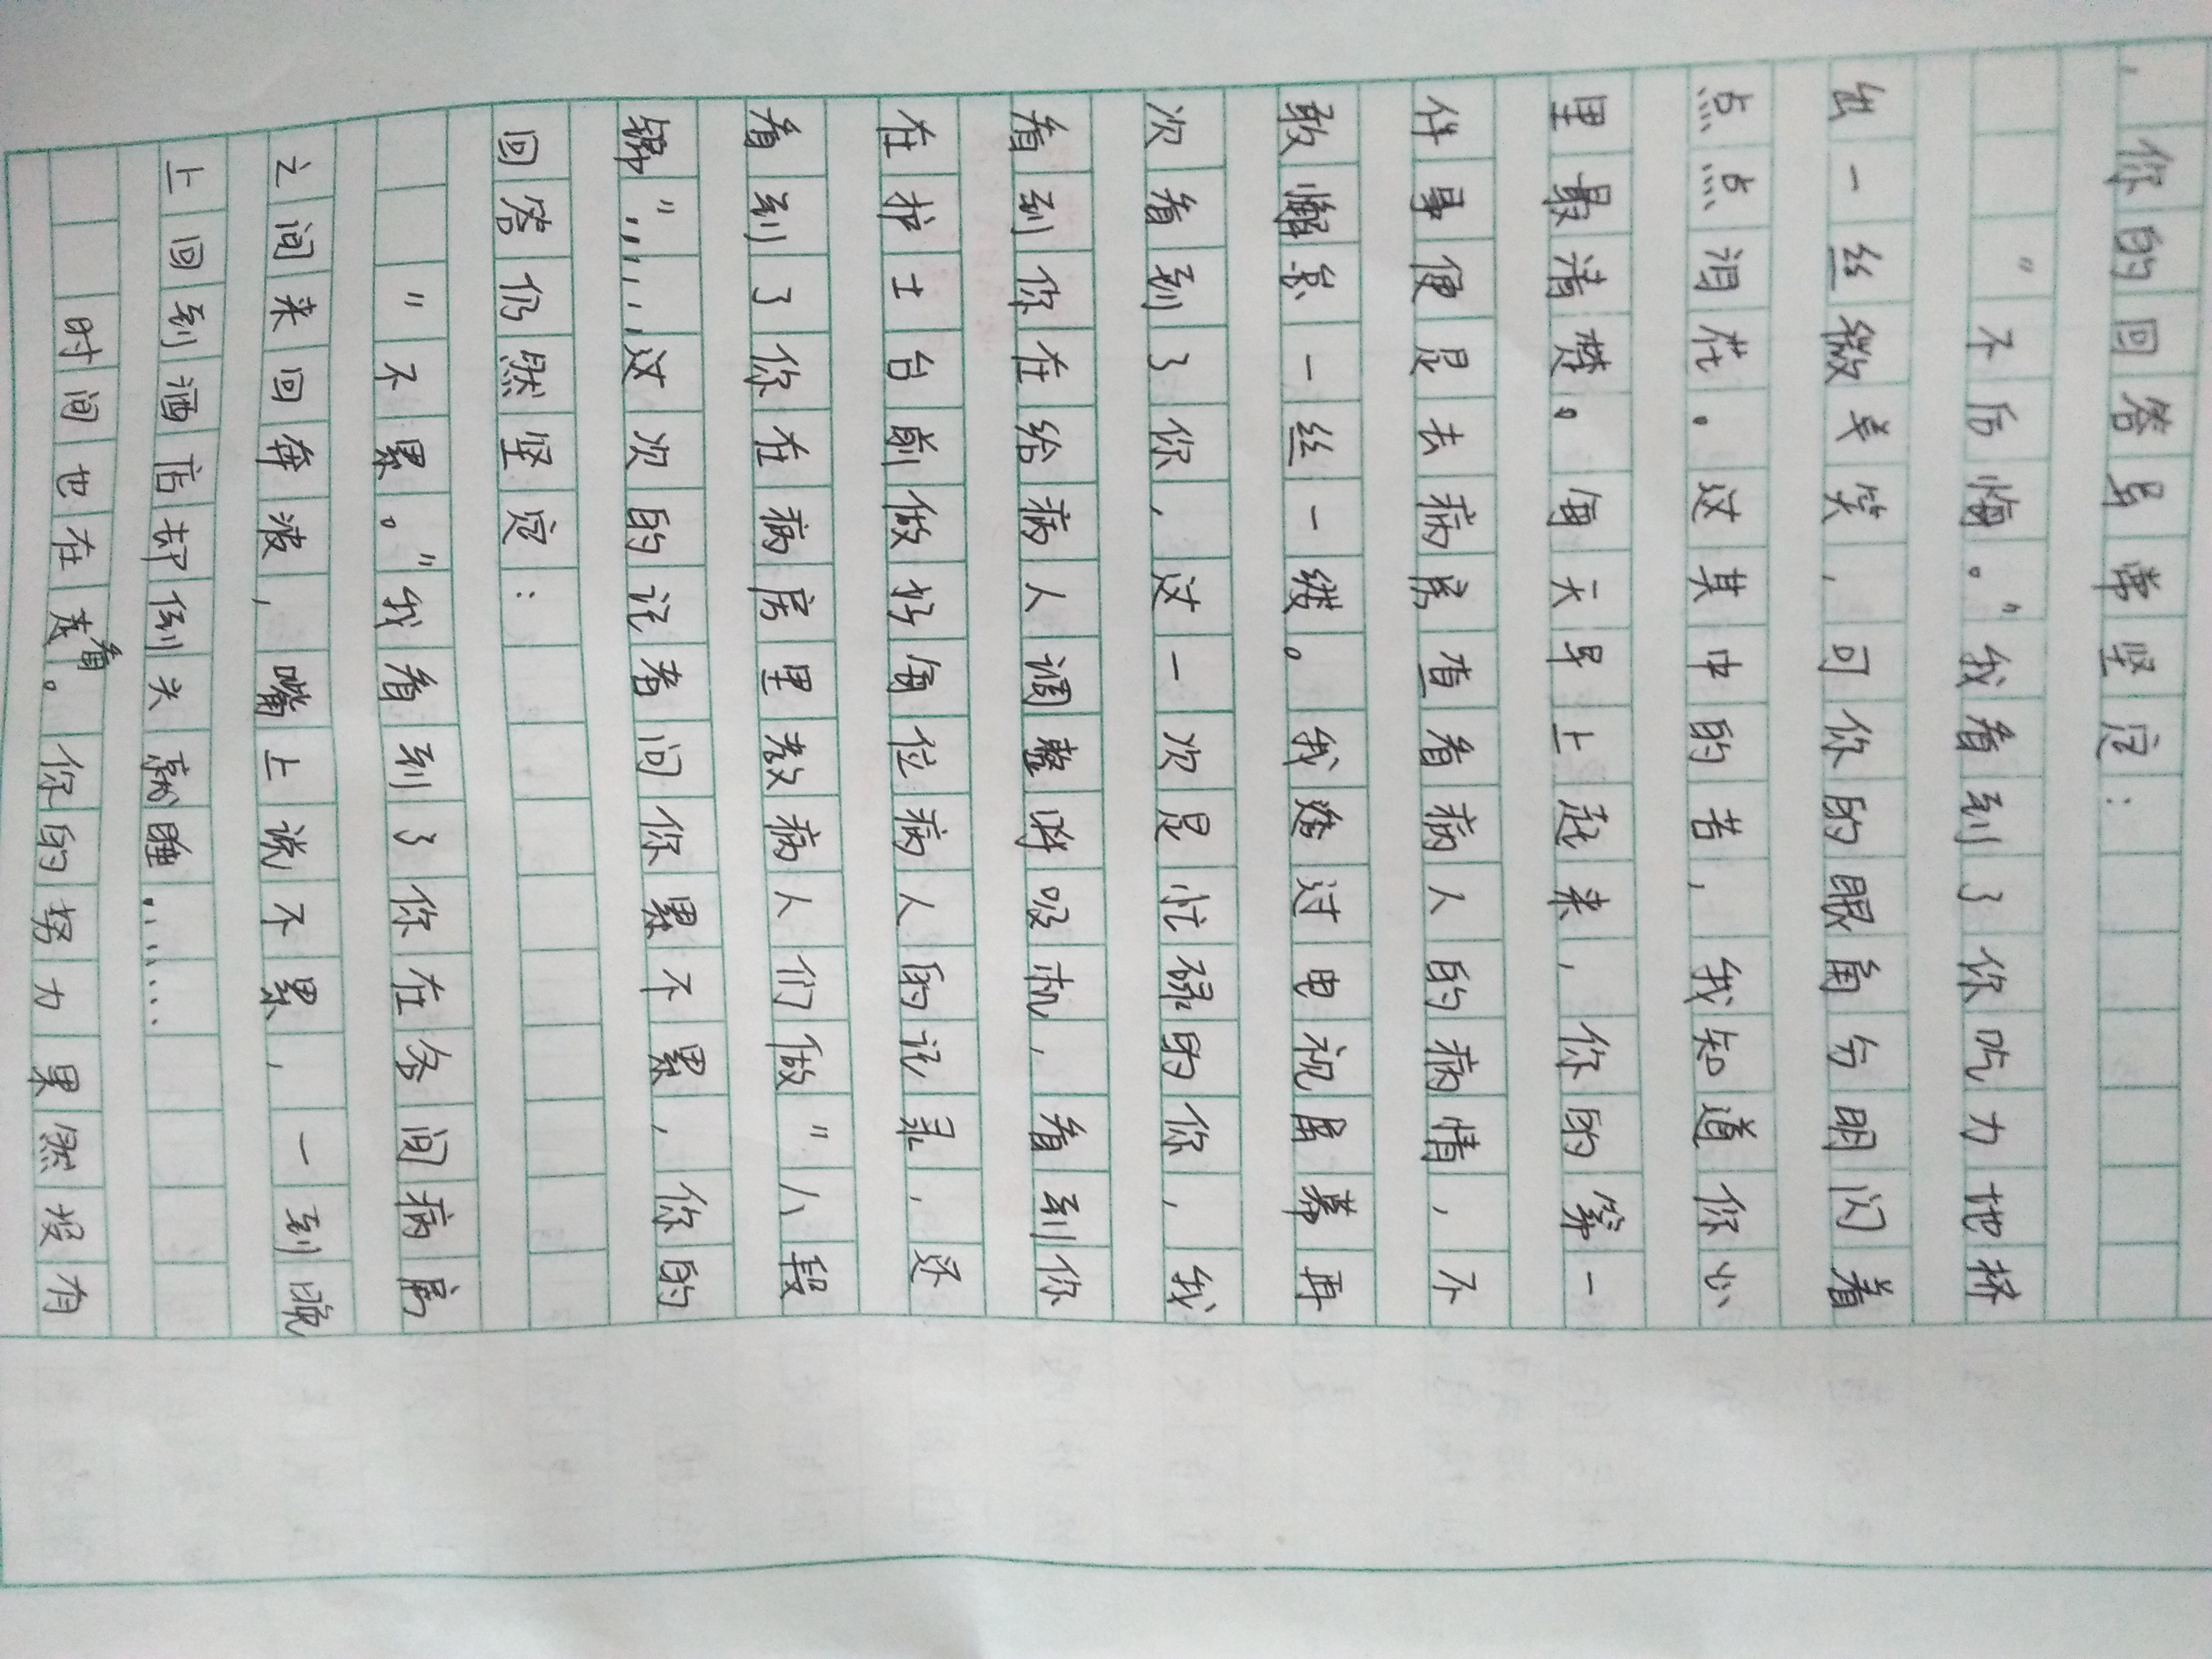 ，你的回答异常坚定：
“不后悔。”我看到了你吃力地挤
出一丝微笑，可你的眼角分明闪着
点点泪花。这其中的苦，我知道你心
里最清楚。每天早上起来，你的第一
件事便是去病房查看病人的病情，不
敢懈怠一丝一缕。我透过电视屏幕再
次看到了你，这一次是忙碌的你，我
看到你在给病人调整呼吸机，看到你
在护士台前做好每位病人的记录，还
看到了你在病房里教病人们做“八段
锦”……这次的记者问你累不累，你的
回答仍然坚定：
“不累。”我看到了你在各间病房
之间来回奔波，嘴上说不累，一到晚
上回到酒店却倒头就睡……
时间也在走着。你的努力果然没有